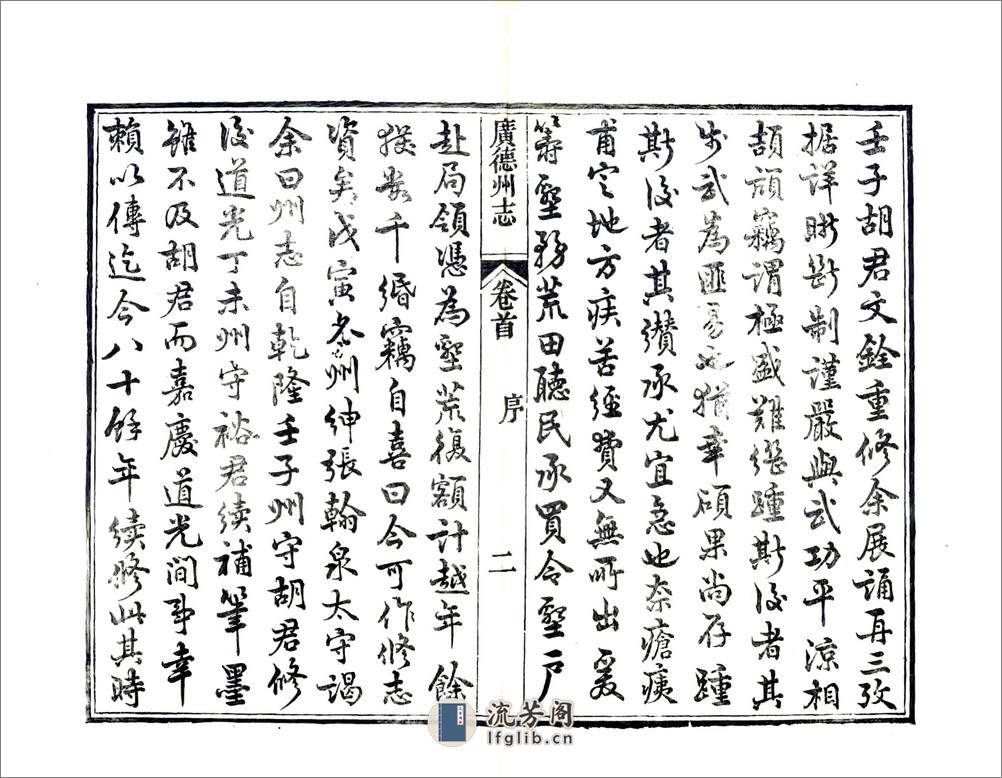 壬子胡君文銓重修余展誦再三攷
据詳晰斷制謹嚴與武功平涼相
頡頏竊謂極盛難繼踵斯後者其
步武為匪易也猶幸碩果尚存踵
斯後者其纘承尤宜急也奈瘡痍
甫定地方疾苦經費又無所出爰
籌墾務荒田聽民承買令墾戶
廣德州志
卷首
序
二
赴局領憑為墾荒復額計越年餘
獲數千緡竊自喜曰今可作修志
資矣戊寅冬州紳張翰泉太守謁
余曰州志自乾隆壬子州守胡君修
後道光丁未州守裕君續補筆墨
雖不及胡君而嘉慶道光間事幸
賴以傳迄今八十餘年續修此其時
流芳阁
lfglib.cn